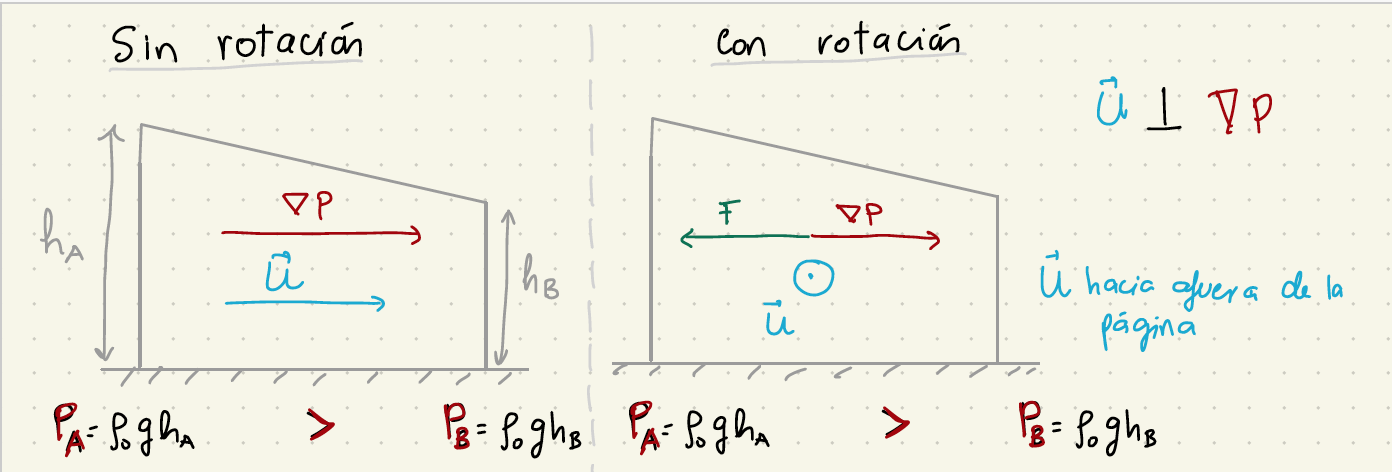 Sin rotación
h_A
∇P
U⃗
h_B
P_A = ρ₀gh_A > P_B = ρ₀gh_B
Con rotación
F
∇P
U⃗
U⃗ ⊥ ∇P
U⃗ hacia afuera de la
página
P_A = ρ₀gh_A > P_B = ρ₀gh_B